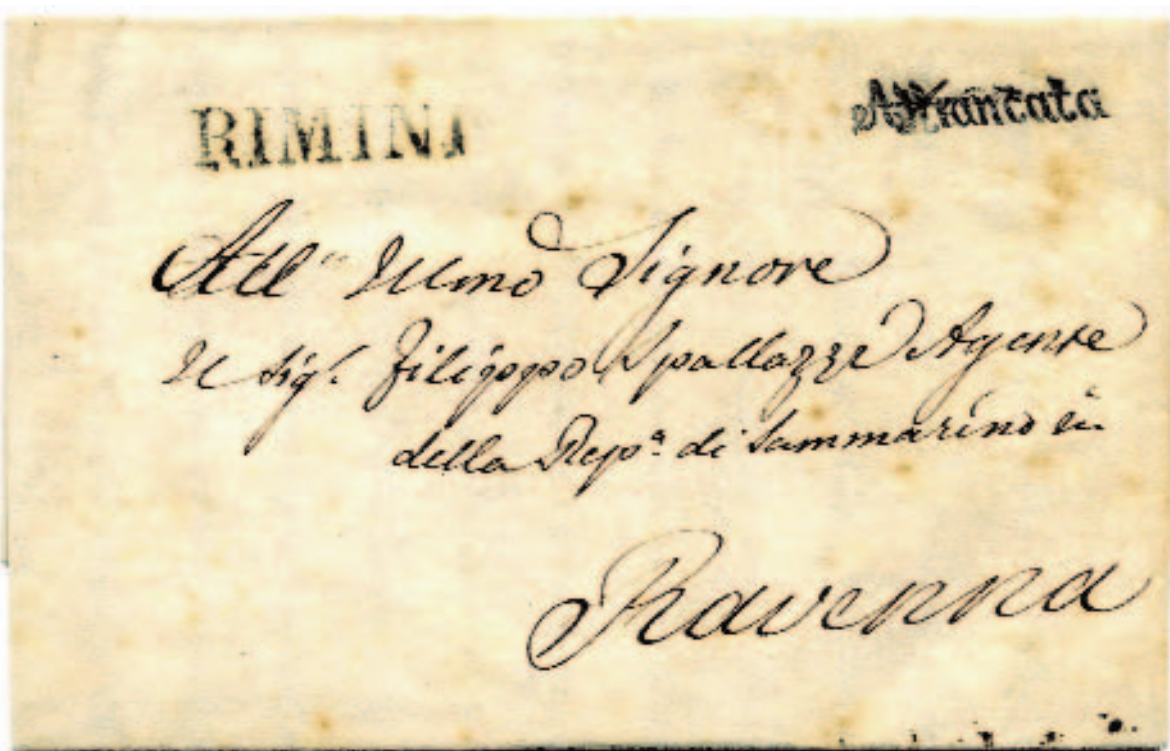 RIMINI Affrancata
All'' Illmo Signore
Il Sig.r Filippo Spallazzi Agente
della Rep.a di Sammarino in
Ravenna